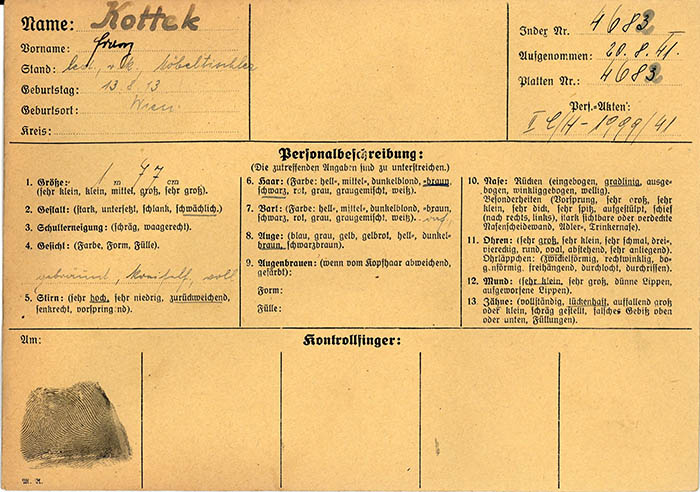 Name: Kottek
Vorname: Franz
Stand: led., r.k., Möbeltischler
Geburtstag: 13.8.13
Geburtsort: Wien
Kreis:
Index Nr. 4682
Aufgenommen: 20.8.41.
Platten Nr.: 4682
Pers.-Akten:
II C/H-1999/41
Personalbeschreibung:
(Die zutreffenden Angaben sind zu unterstreichen.)
1. Größe: 1 m 77 cm
(sehr klein, klein, mittel, groß, sehr groß).
2. Gestalt: (stark, untersetzt, schlank, schwächlich.)
3. Schulterneigung: (schräg, waagerecht).
4. Gesicht: (Farbe, Form, Fülle).
gebräunt, voll
5. Stirn: (sehr hoch, sehr niedrig, zurückweichend,
senkrecht, vorspringend).
6. Haar: (Farbe: hell-, mittel-, dunkelblond, -braun,
schwarz, rot, grau, graugemischt, weiß).
7. Bart: (Farbe: hell-, mittel-, dunkelblond, -braun,
schwarz, rot, grau, graugemischt, weiß).
8. Auge: (blau, grau, gelb, gelbrot, hell-, dunkel-
braun, schwarzbraun).
9. Augenbrauen: (wenn vom Kopfhaar abweichend,
gefärbt):
Form:
Fülle:
10. Nase: Rücken (eingebogen, gradlinig, ausge-
bogen, winkliggebogen, wellig).
Besonderheiten (Vorsprung, sehr groß, sehr
klein, sehr dick, sehr spitz, aufgestülpt, schief
(nach rechts, links), stark sichtbare oder verdeckte
Nasenscheidewand, Adler-, Trinkernase).
11. Ohren: (sehr groß, sehr klein, sehr schmal, drei-
viereckig, rund, oval, abstehend, sehr anliegend).
Ohrläppchen: (zwickelförmig, rechtwinklig, bo-
g.nförmig, freihängend, durchlocht, durchrissen).
12. Mund: (sehr klein, sehr groß, dünne Lippen,
aufgeworfene Lippen).
13. Zähne: (vollständig, lückenhaft, auffallend groß
oder klein, schräg gestellt, falsches Gebiß oben
oder unten, Füllungen).
Am:
Kontrollfinger: